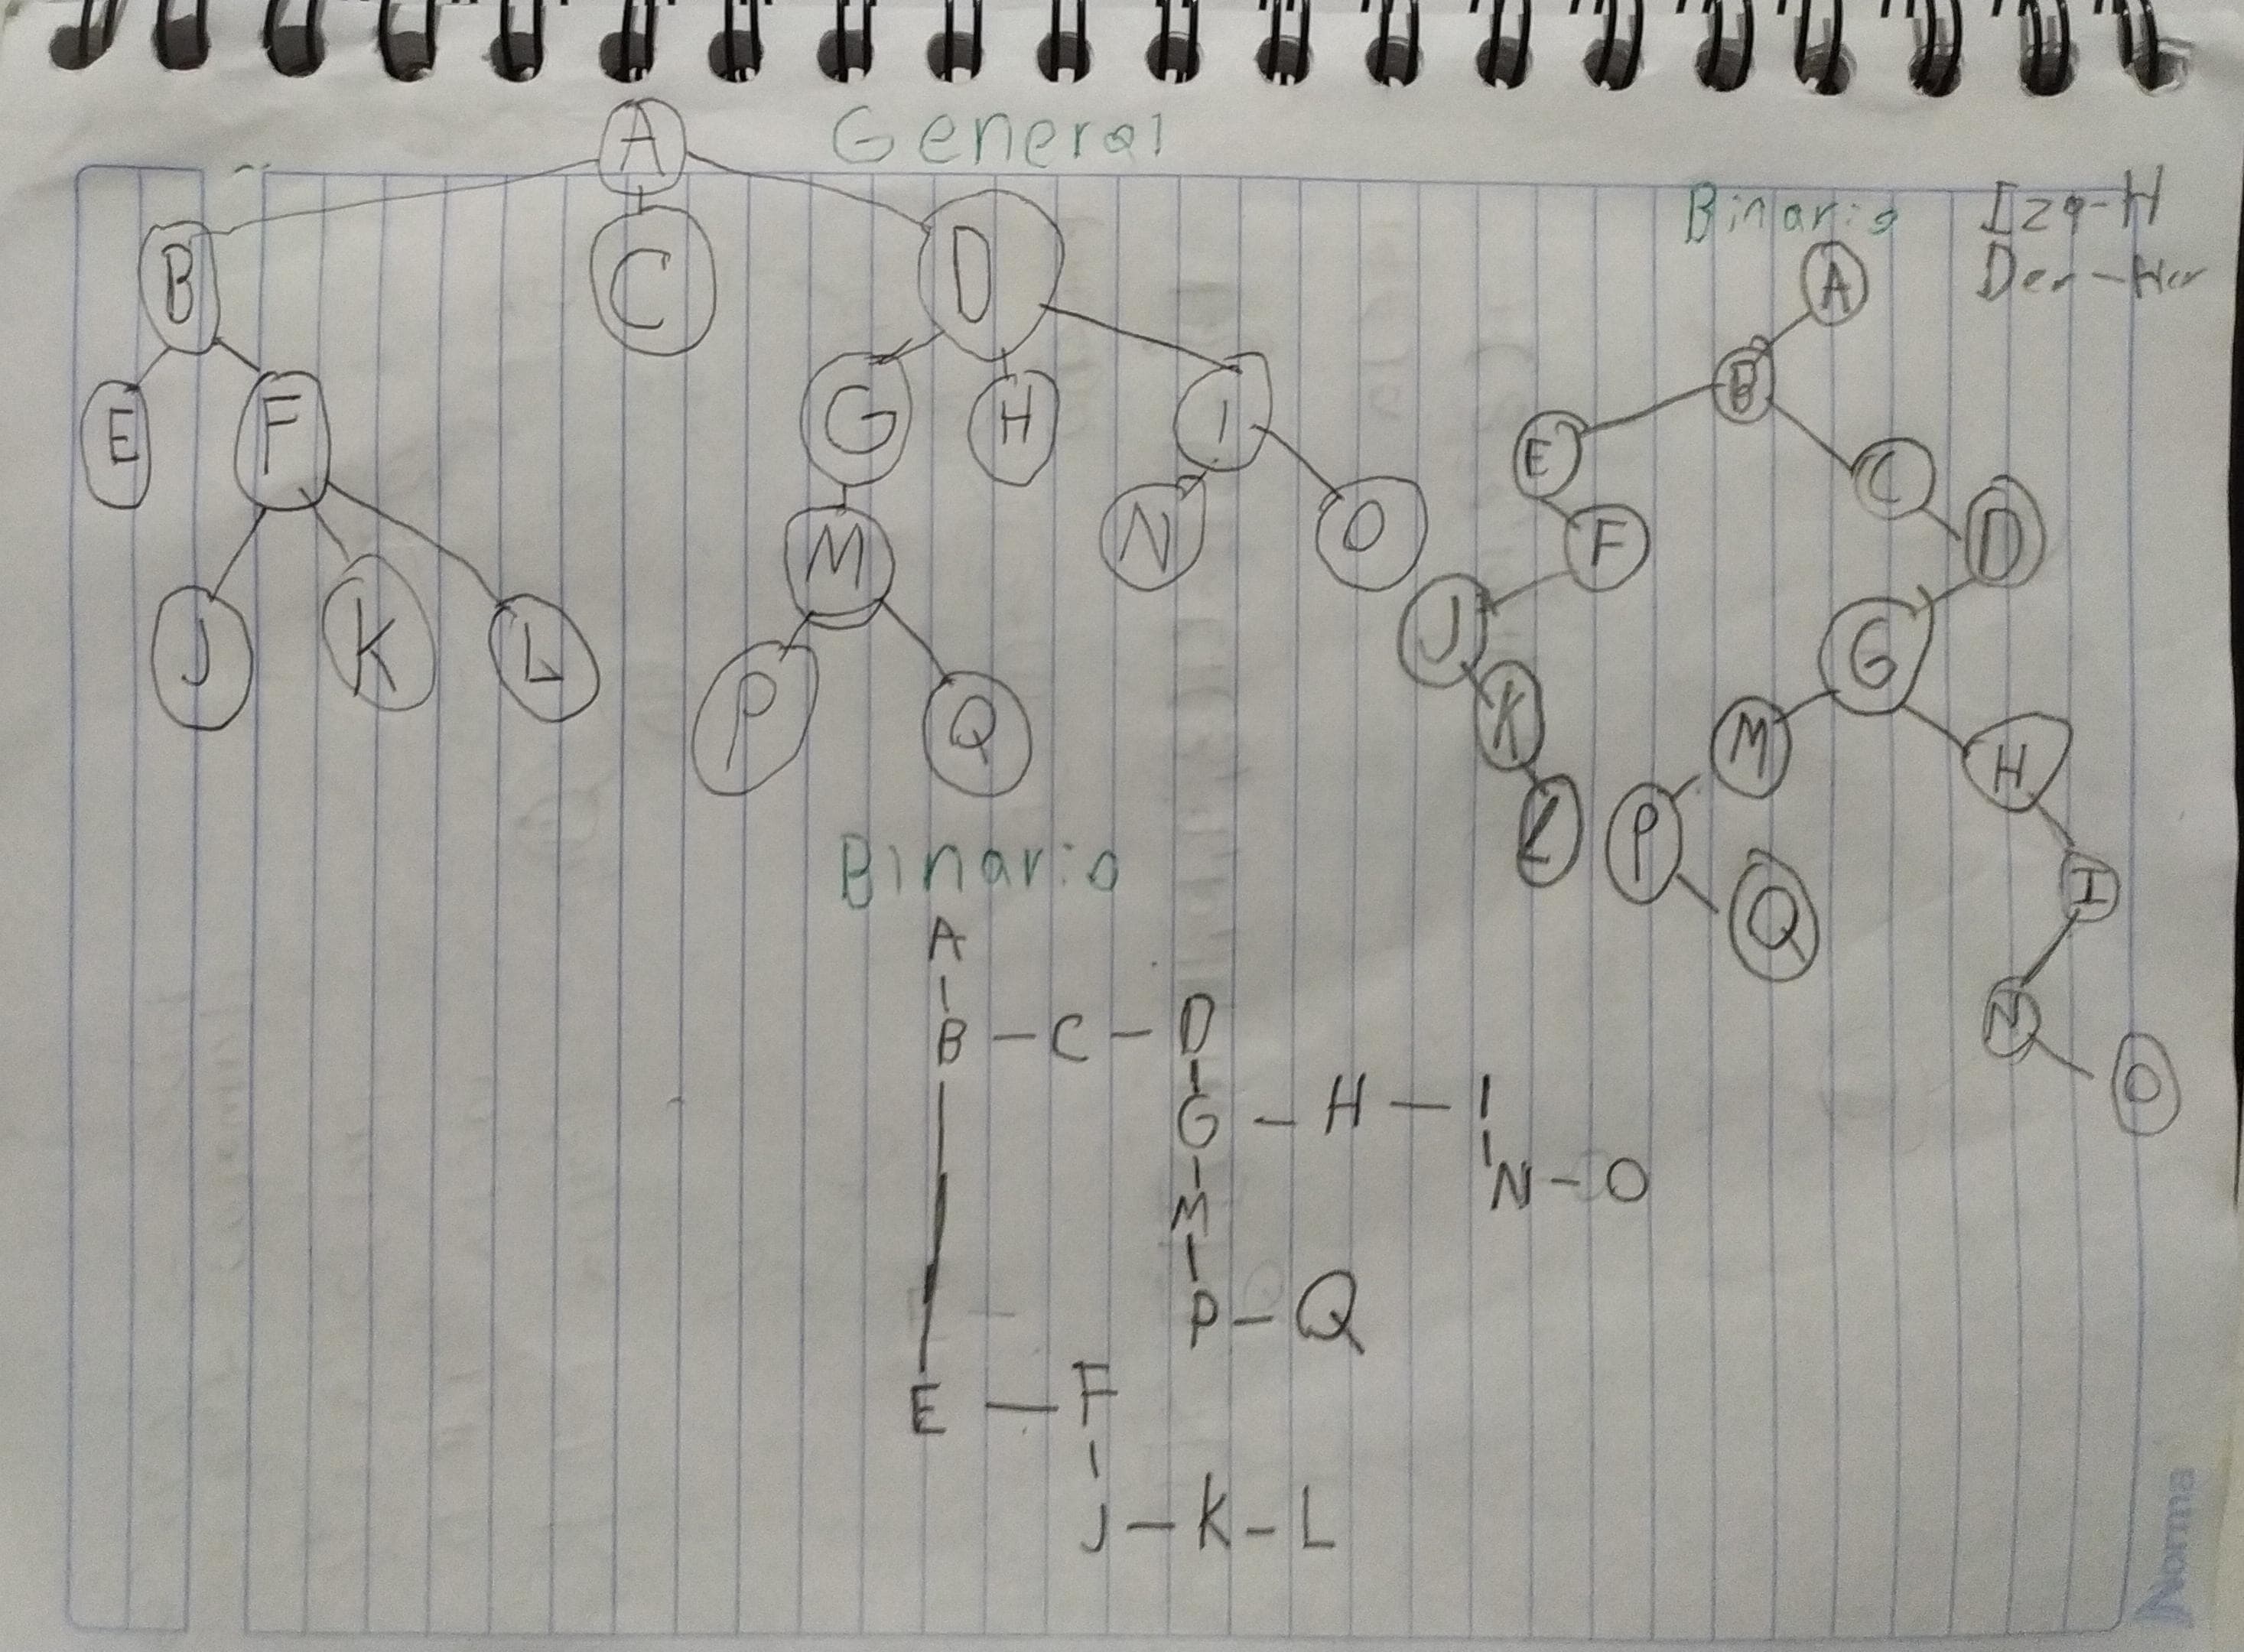 General
A
B C D
E F G H I
J K L M N O
P Q
Binario
Izq-H
Der-Her
A
B
E C
F D
J G
K M H
L P I
Q
N
O
Binario
A
B - C - D
G - H - I
M N - O
P - Q
E - F
J - K - L
Norma